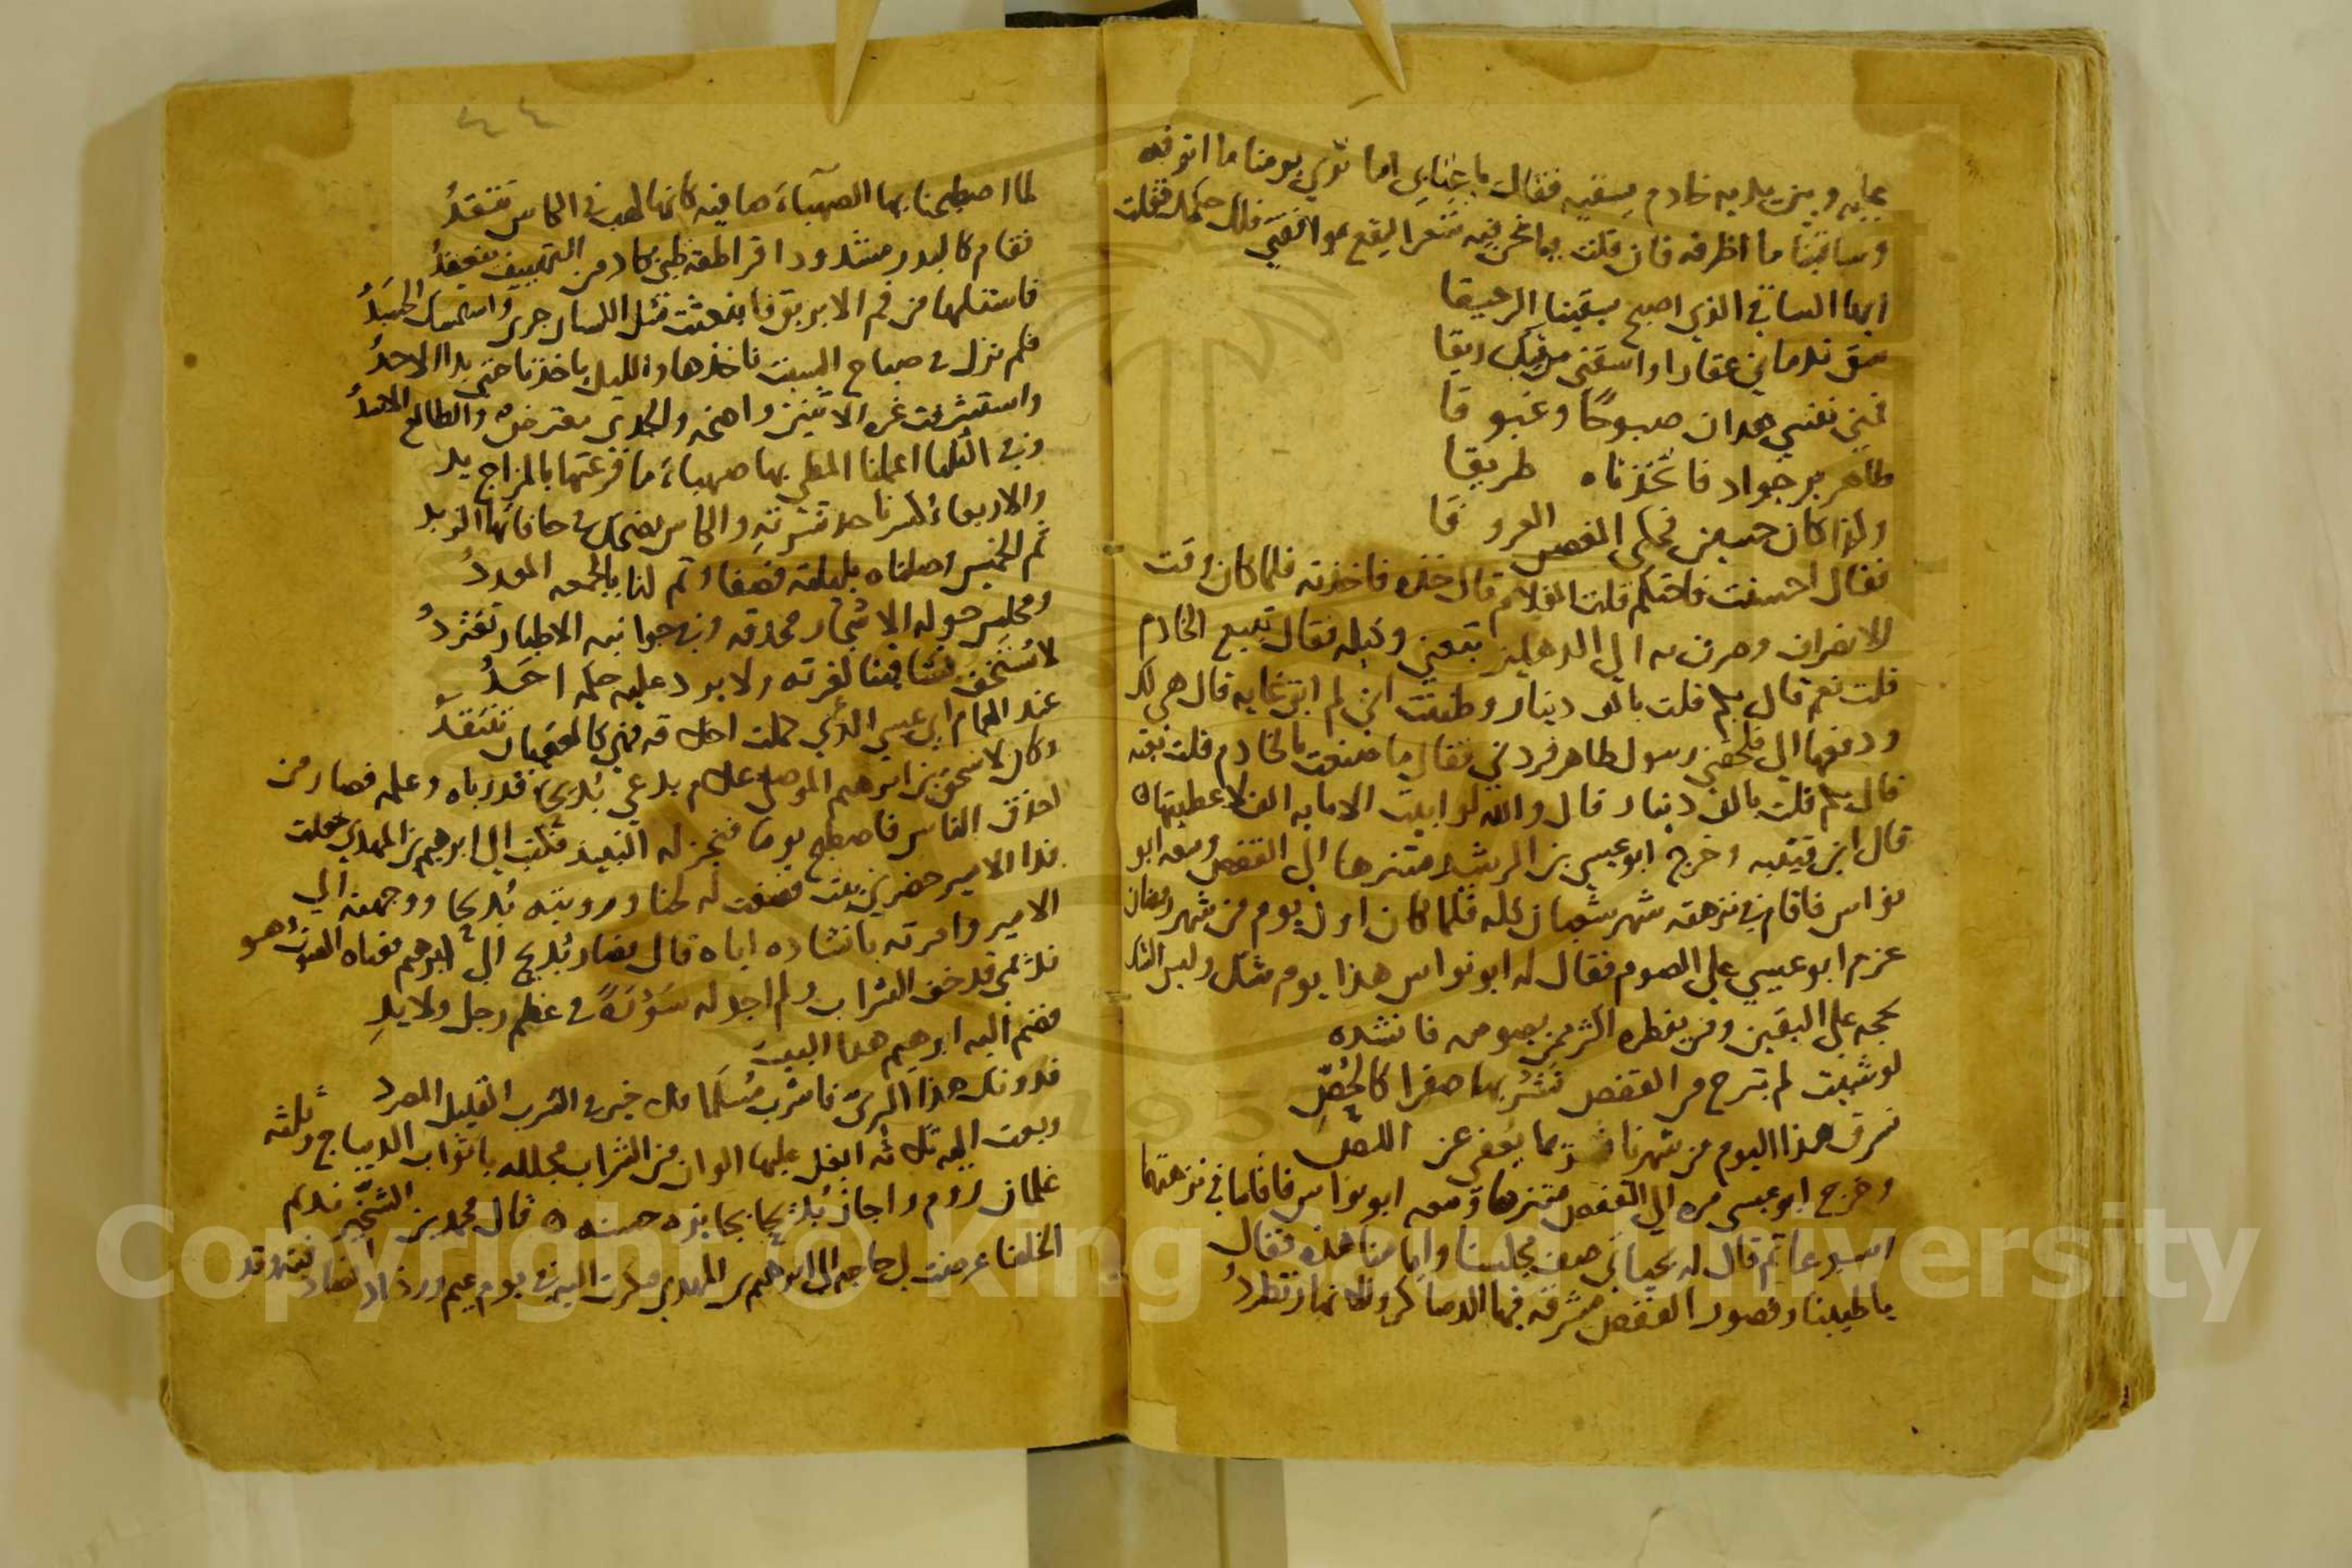 عليه وبين يديه خادم يسقيه فقال يا عناني اما ترى يومنا ما اترفه
وساقينا ما اظرفه فان قلت بما نحن فيه شعرا يقع موافقتي فلك حكمك فقلت
ايها الساقي الذي اصبح يسقينا الرحيقا
سق ندماني عقارا واسقني من ريقا
نفسي هدان صبوحًا وغبوقا
طاهر بر جواد فاتخذناه طريقا
ولذا كان حسين في العروقا
فقال احسنت فاحتكم قلت الغلام قال خذه فاخذته فلما كان وقت
الانصراف وصرت به الى الدهليز وكيله فقال تبيع الخادم
قلت نعم قال بكم قلت بالف دينار وظننت اني لم ابق غايه قال هي لك
ودفعها الي فلحقني رسول طاهر فردني فقال ما صنعت بالخادم قلت بعته
قال بكم قلت بالف دينار قال والله لو ابيت الا مايه الف لاعطيتها
قال ابن قتيبه وخرج ابو عيسي بن الرشيد متنزها الى القفص ومعه ابو
نواس فاقام في نزهته شهر شعبان كله فلما كان اول يوم من شهر رمضان
عزم ابو عيسي على الصوم فقال له ابو نواس هذا يوم شك وليس الشك
بحجه على اليقين ومن يفطره اكثر ممن يصومه فانشده
لو شيت لم تبرح من القفص نشربها صفرا كالحُصِّ
نسرق هذا اليوم من شهرنا قد يعفى عن اللص
وخرج ابو عيسى مره الى القفص متنزها ومعه ابو نواس فاقاما في نزهتهما
اسبوعا ثم قال له بحياتي صف مجلسنا وايامنا هذه فقال
يا طيبنا وقصور القفص مشرقه فيها الدساكر والانهار تطردُ
٤٤
لما اصطبحنا بها الصهباء صافيه كانها لهب في الكاس تتقدُ
فقام كالبدر مشدودا قراطقه ظبي يكاد من التهييف ينعقدُ
فاستلها من فم الابريق فانبعثت مثل اللسان جرى واستمسك الجسدُ
فلم نزل في صباح السبت ناخذها والليل ياخذنا حتى بدا الاحدُ
واستشرفت غره الاثنين واضحه والجدي معترض والطالع الاسدُ
وفي الثلثا اعملنا المطي بها صهباء ما قرعتها بالمزاج يد
والاربعاء كسرنا حد شرته والكاس يضحك في حافاتها الزبد
ثم الخميس وصلناه بليلته قصفا وتم لنا بالجمعه العددُ
ومجلس حوله الاشجار محدقه وفي جوانبه الاطيار تغتردُ
لا نستخف بساقينا لغرته ولا يرد عليه حكمه احَدُ
عند الهمام ابي عيسي الذي كملت اخلاقه فهي كالعقيان تنتقدُ
وكان لاسحق بن ابرهيم الموصلي غلام يدعي بُديحًا قد رباه وعلمه فصار من
احذق الناس فاصطبح يوما فنجز له النبيذ فكتب الى ابرهيم بن المهدي جعلت
فدا الامير حضرني بيت فصنعت له لحنا ورويته بُديحا ووجهته الى
الامير وامرته بانشاده اياه قال فصار بُديح الى ابرهيم فغناه الصوت وهو
نديمي قد خف الشراب ولم اجد له سَوْرَةً في عظم رجل ولا يدِ
فضم اليه ابرهيم هذا البيت
فدونك هذا الري فاشرب مُسلَّما فلا خير في الشرب القليل المصرد
وبعث اليه بثلاثه ابغل عليها الوان من الشراب مجلله باثواب الديباج وثلثه
غلمان روم واجاز بُديحا بجايزه حسنه قال محمد بن الشخير نديم
الخلفا عرضت لي حاجه الى ابرهيم بن المهدي فصرت اليه في يوم غيم ورذاذ